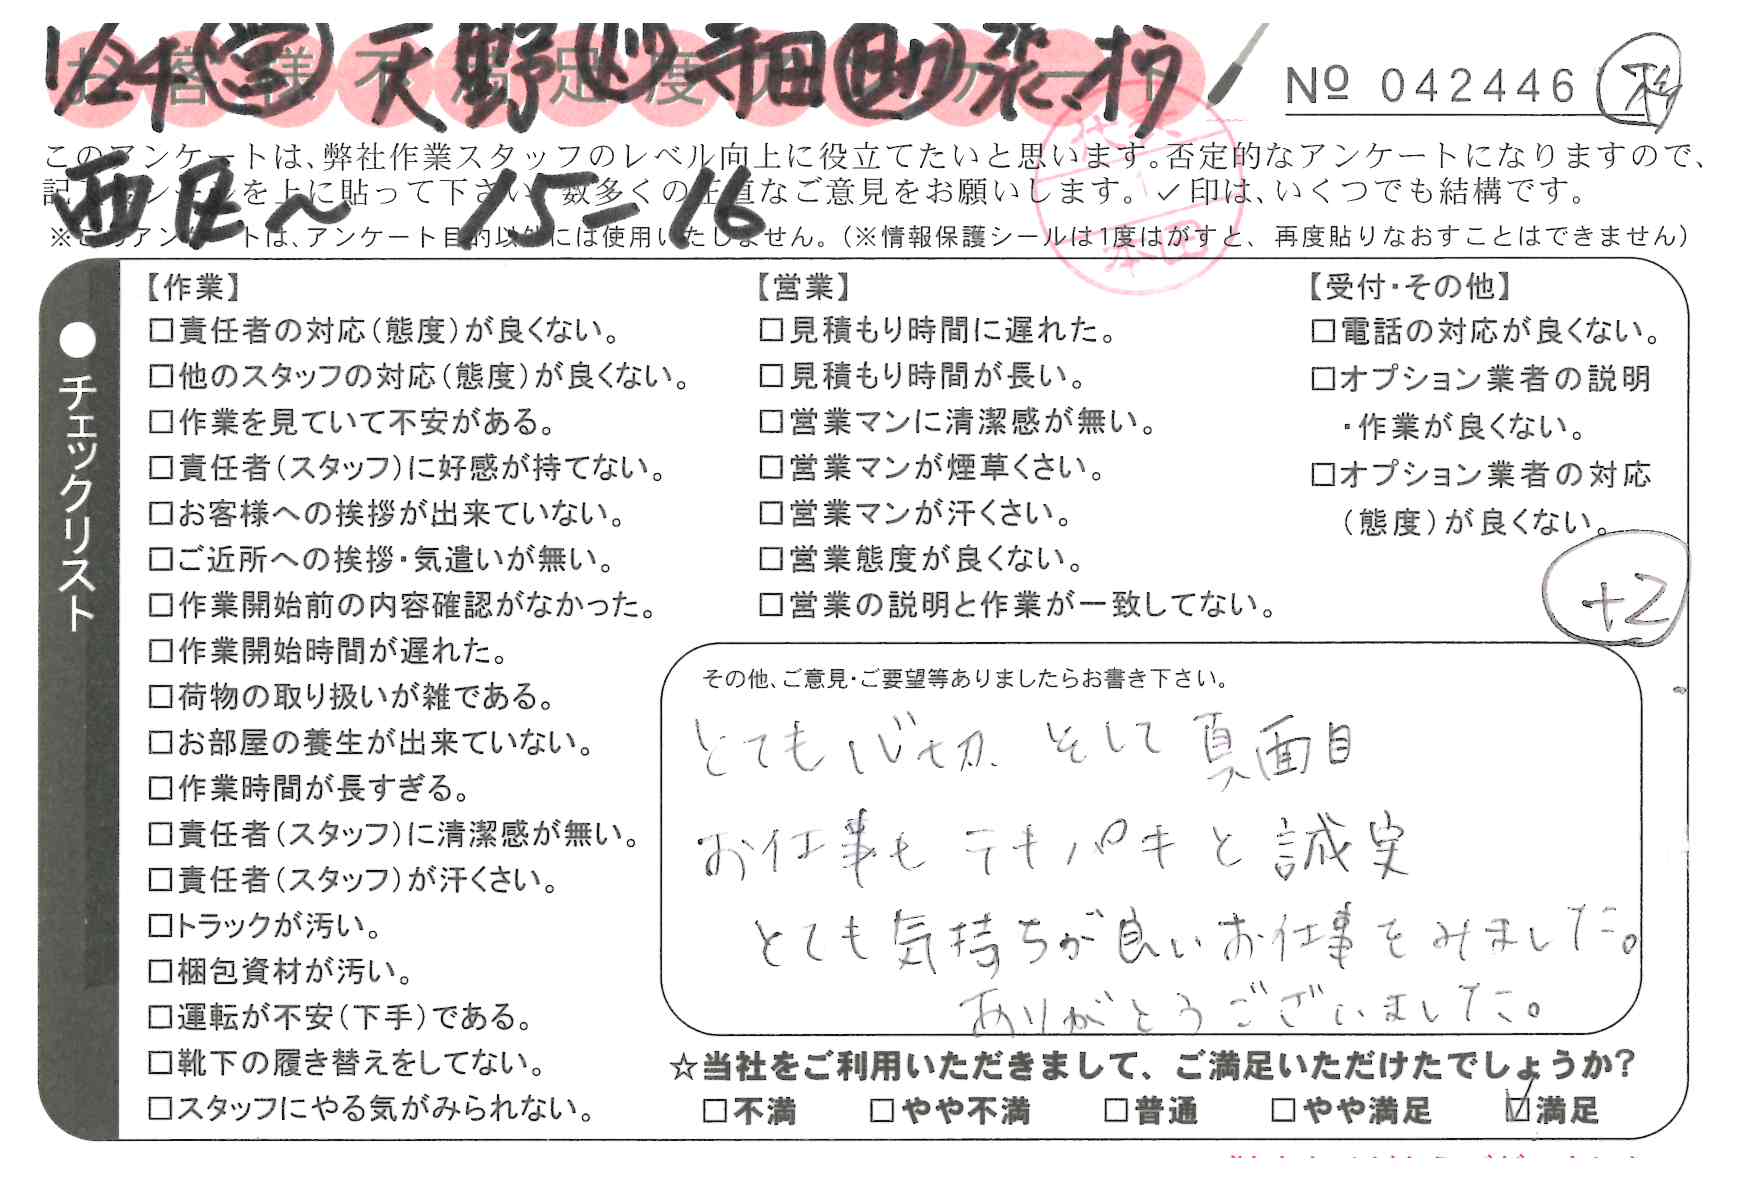 お客様不満足度アンケート
1/24 天野 寺田 張、
№ 042446
このアンケートは、弊社作業スタッフのレベル向上に役立てたいと思います。否定的なアンケートになりますので、
を上に貼って下さい 数多くの正直なご意見をお願いします。✓印は、いくつでも結構です。
西区〜 15-16
※このアンケートは、アンケート目的以外には使用いたしません。(※情報保護シールは1度はがすと、再度貼りなおすことはできません)
本田
●チェックリスト
【作業】
□責任者の対応(態度)が良くない。
□他のスタッフの対応(態度)が良くない。
□作業を見ていて不安がある。
□責任者(スタッフ)に好感が持てない。
□お客様への挨拶が出来ていない。
□ご近所への挨拶・気遣いが無い。
□作業開始前の内容確認がなかった。
□作業開始時間が遅れた。
□荷物の取り扱いが雑である。
□お部屋の養生が出来ていない。
□作業時間が長すぎる。
□責任者(スタッフ)に清潔感が無い。
□責任者(スタッフ)が汗くさい。
□トラックが汚い。
□梱包資材が汚い。
□運転が不安(下手)である。
□靴下の履き替えをしてない。
□スタッフにやる気がみられない。
【営業】
□見積もり時間に遅れた。
□見積もり時間が長い。
□営業マンに清潔感が無い。
□営業マンが煙草くさい。
□営業マンが汗くさい。
□営業態度が良くない。
□営業の説明と作業が一致してない。
【受付・その他】
□電話の対応が良くない。
□オプション業者の説明
・作業が良くない。
□オプション業者の対応
(態度)が良くない。
+2
その他、ご意見・ご要望等ありましたらお書き下さい。
とても 切 そして 真面目
お仕事も テキパキと 誠実
とても気持ちが良いお仕事をみました。
ありがとうございました。
☆当社をご利用いただきまして、ご満足いただけたでしょうか?
□不満 □やや不満 □普通 □やや満足 ☑満足